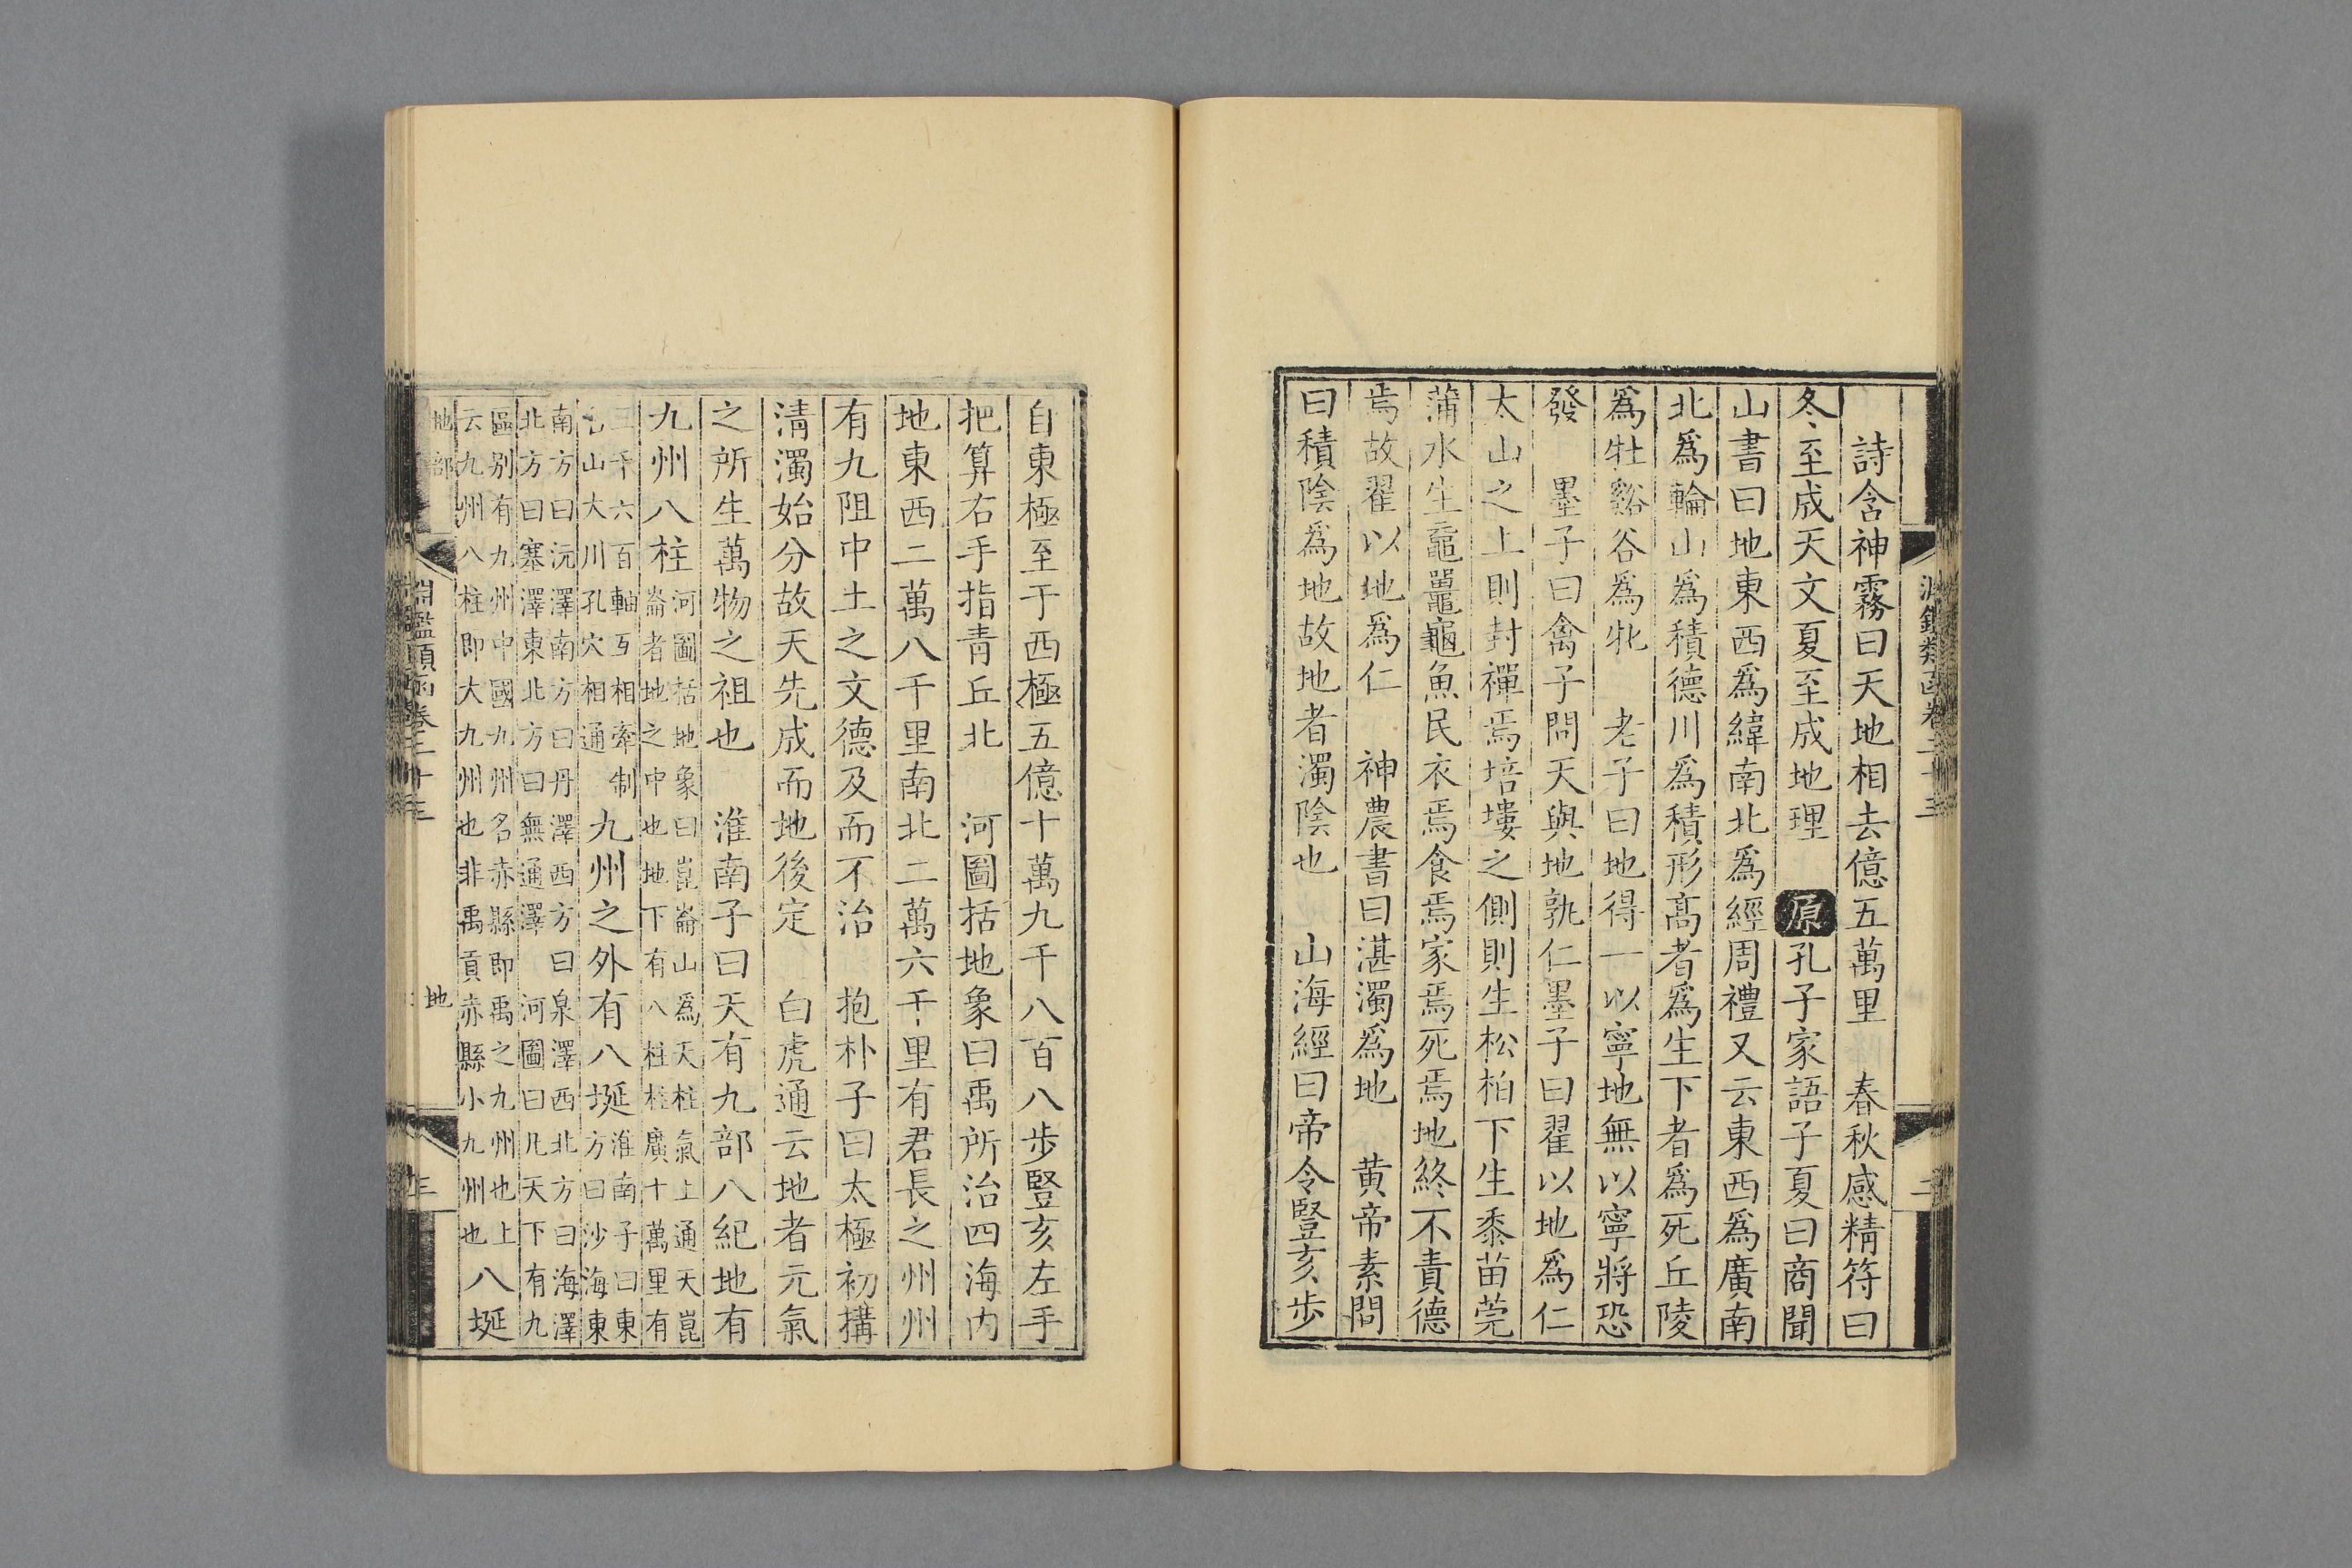 詩含神霧曰天地相去億五萬里　春秋感精符曰
冬至成天文夏至成地理　原孔子家語子夏曰商聞
山書曰地東西爲緯南北爲經周禮又云東西爲廣南
北爲輪山爲積德川爲積形高者爲生下者爲死丘陵
爲牡谿谷爲牝　老子曰地得一以寧地無以寧將恐
發　墨子曰禽子問天與地孰仁墨子曰翟以地爲仁
太山之上則封禪焉培塿之側則生松柏下生黍苗莞
蒲水生黿鼉龜魚民衣焉食焉家焉死焉地終不責德
焉故翟以地爲仁　神農書曰湛濁爲地　黄帝素問
曰積陰爲地故地者濁陰也　山海經曰帝令豎亥步
淵鑑類函卷二十三
二
自東極至于西極五億十萬九千八百八步豎亥左手
把算右手指青丘北　河圖括地象曰禹所治四海內
地東西二萬八千里南北二萬六千里有君長之州州
有九阻中土之文德及而不治　抱朴子曰太極初搆
清濁始分故天先成而地後定　白虎通云地者元氣
之所生萬物之祖也　淮南子曰天有九部八紀地有
九州八柱河圖括地象曰崑崙山爲天柱氣上通天崑
崙者地之中也地下有八柱柱廣十萬里有
三千六百軸互相牽制
名山大川孔穴相通
九州之外有八埏淮南子曰東
方曰沙海東
南方曰沅澤南方曰丹澤西方曰泉澤西北方曰海澤
北方曰塞澤東北方曰無通澤　河圖曰凡天下有九
區别有九州中國九州名赤縣即禹之九州也上
云九州八柱即大九州也非禹貢赤縣小九州也
八埏
地部
淵鑑類函卷二十三
地
三